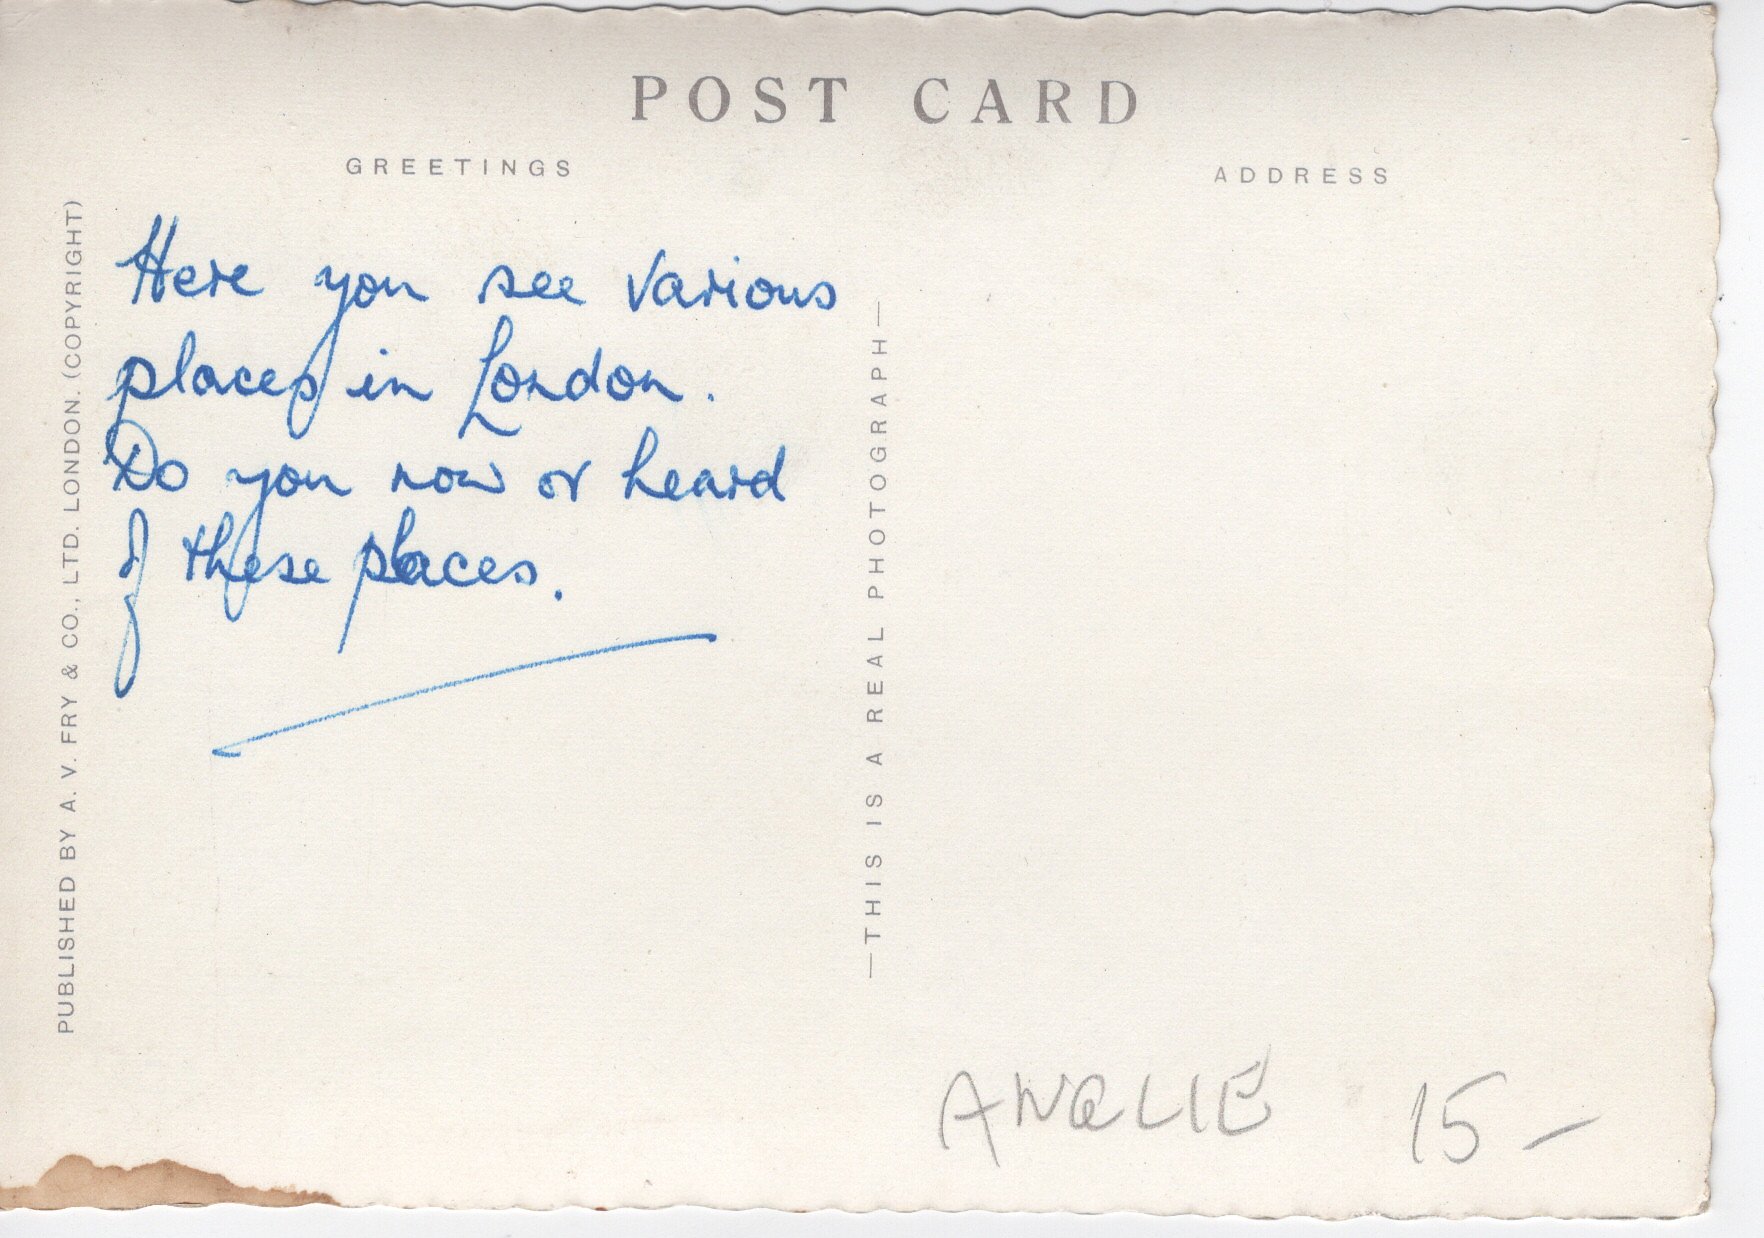 POST CARD
GREETINGS
ADDRESS
PUBLISHED BY A. V. FRY & CO., LTD. LONDON. (COPYRIGHT)
Here you see various
places in London.
Do you now or heard
of these places.
—THIS IS A REAL PHOTOGRAPH—
ANGLIE 15-